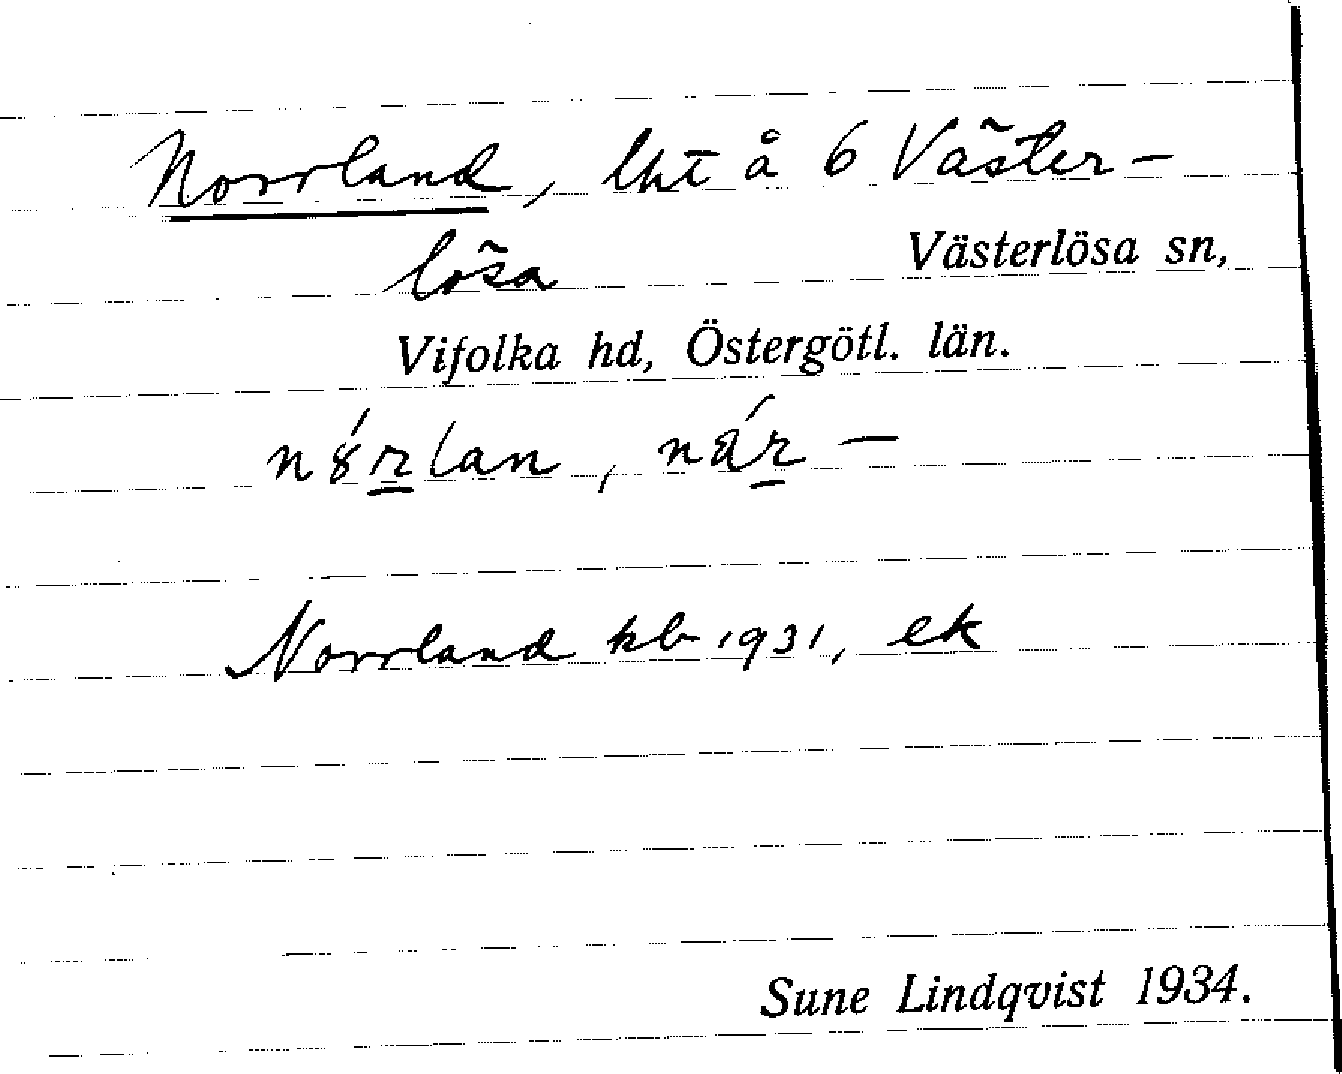 Norrland, lht å 6 Väster-
lösa Västerlösa sn,
Vifolka hd, Östergötl. län.
n8́r̲lan, nár̲ —
Norrland kb 1931, ek
Sune Lindqvist 1934.